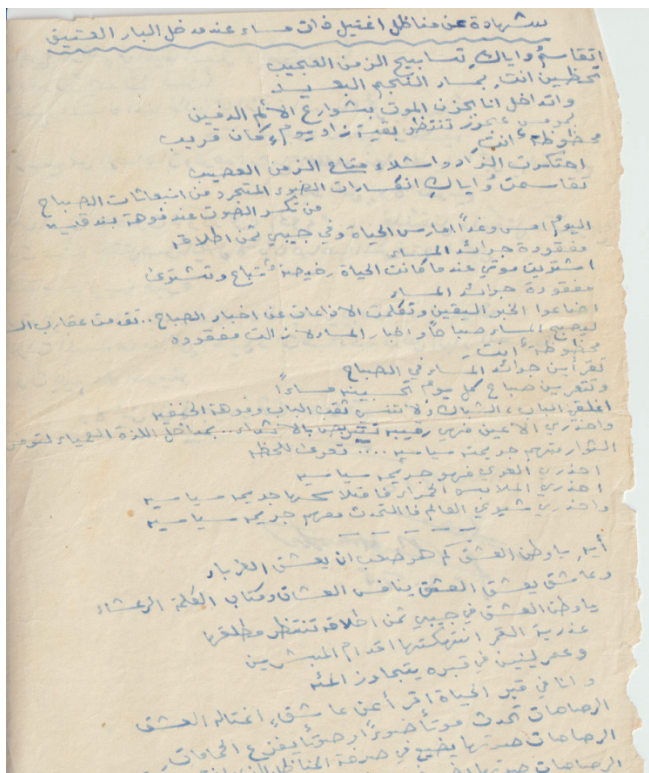 شهادة عن مناظل اغتيل ذات مساء عند مدخل البار العتيق
اتقاسمُ واياكِ تسابيح الزمن العجيب
تحظين انتِ بمسار النجم البعيد
واتداخل انا بحزن الموت بشوارع الألم الدفين
تنتظر بقية زاد يومٍ كان قريب
محظوظة انتِ
احتكرت الزاد واشلاء متاع الزمن العصيب
تقاسمت وُاياكِ انكسارات الضوء المتجرد من انبعاثات الصباح
من تكسر الصوت عند فوهة بندقيه
اليومُ امس وغداً امارس الحياة وفي جيبي ثمن اطلاقه
مفقودة جرائد المساء
اشتريت موتي عندما كانت الحياة رخيصة تُباع وتشترى
مفقودة جرائد المساء
اضاعوا الخبر اليقين وتكلمت الاذاعات عن اخبار الصباح .. عقارب
ليصبح المساء صباحاً واخبار المساء لا زالت مفقوده
محظوظة انتِ
تقرأين جرائد المساء في الصباح
وتنتظرين صباح كل يوم تحسبينه مساءاً
اغلقي الباب، الشباك ولا تنسي ثقب الباب وفوهة الحنفيه
واحذري الأعين فهي رقيبة بمداخل اللذة العمياء
الثوار جريمة سياسيه .... للحظه
احذري الهوى فهو جريمه سياسيه
احذري الملابس الحمراء سياسيه
واحذري شيوعي العالم فالتحدث معهم جريمه سياسيه
أيهِ ياوطن العشق كم هو صعب ان يعشق الغرباء
وعاشق يعشق العشق ينافس العشاق وكتاب الكلمة الرعشاء
ياوطن العشق في جيبي ثمن اطلاقه تنتظر مطلقها
عذرية القمر انتهكتها اقدام المبشرين
وعمر لينين في قبره يتجاوز المئه
وانا في قبر الحياة اقرأ عن عاشقٍ اغتاله العشق
الرصاصات تحدث موتاً ضوءاً وصوتاً يفزع الحمامات
الرصاصات صوتها يضيع في صرخة المناظل
الرصاصات صوتها